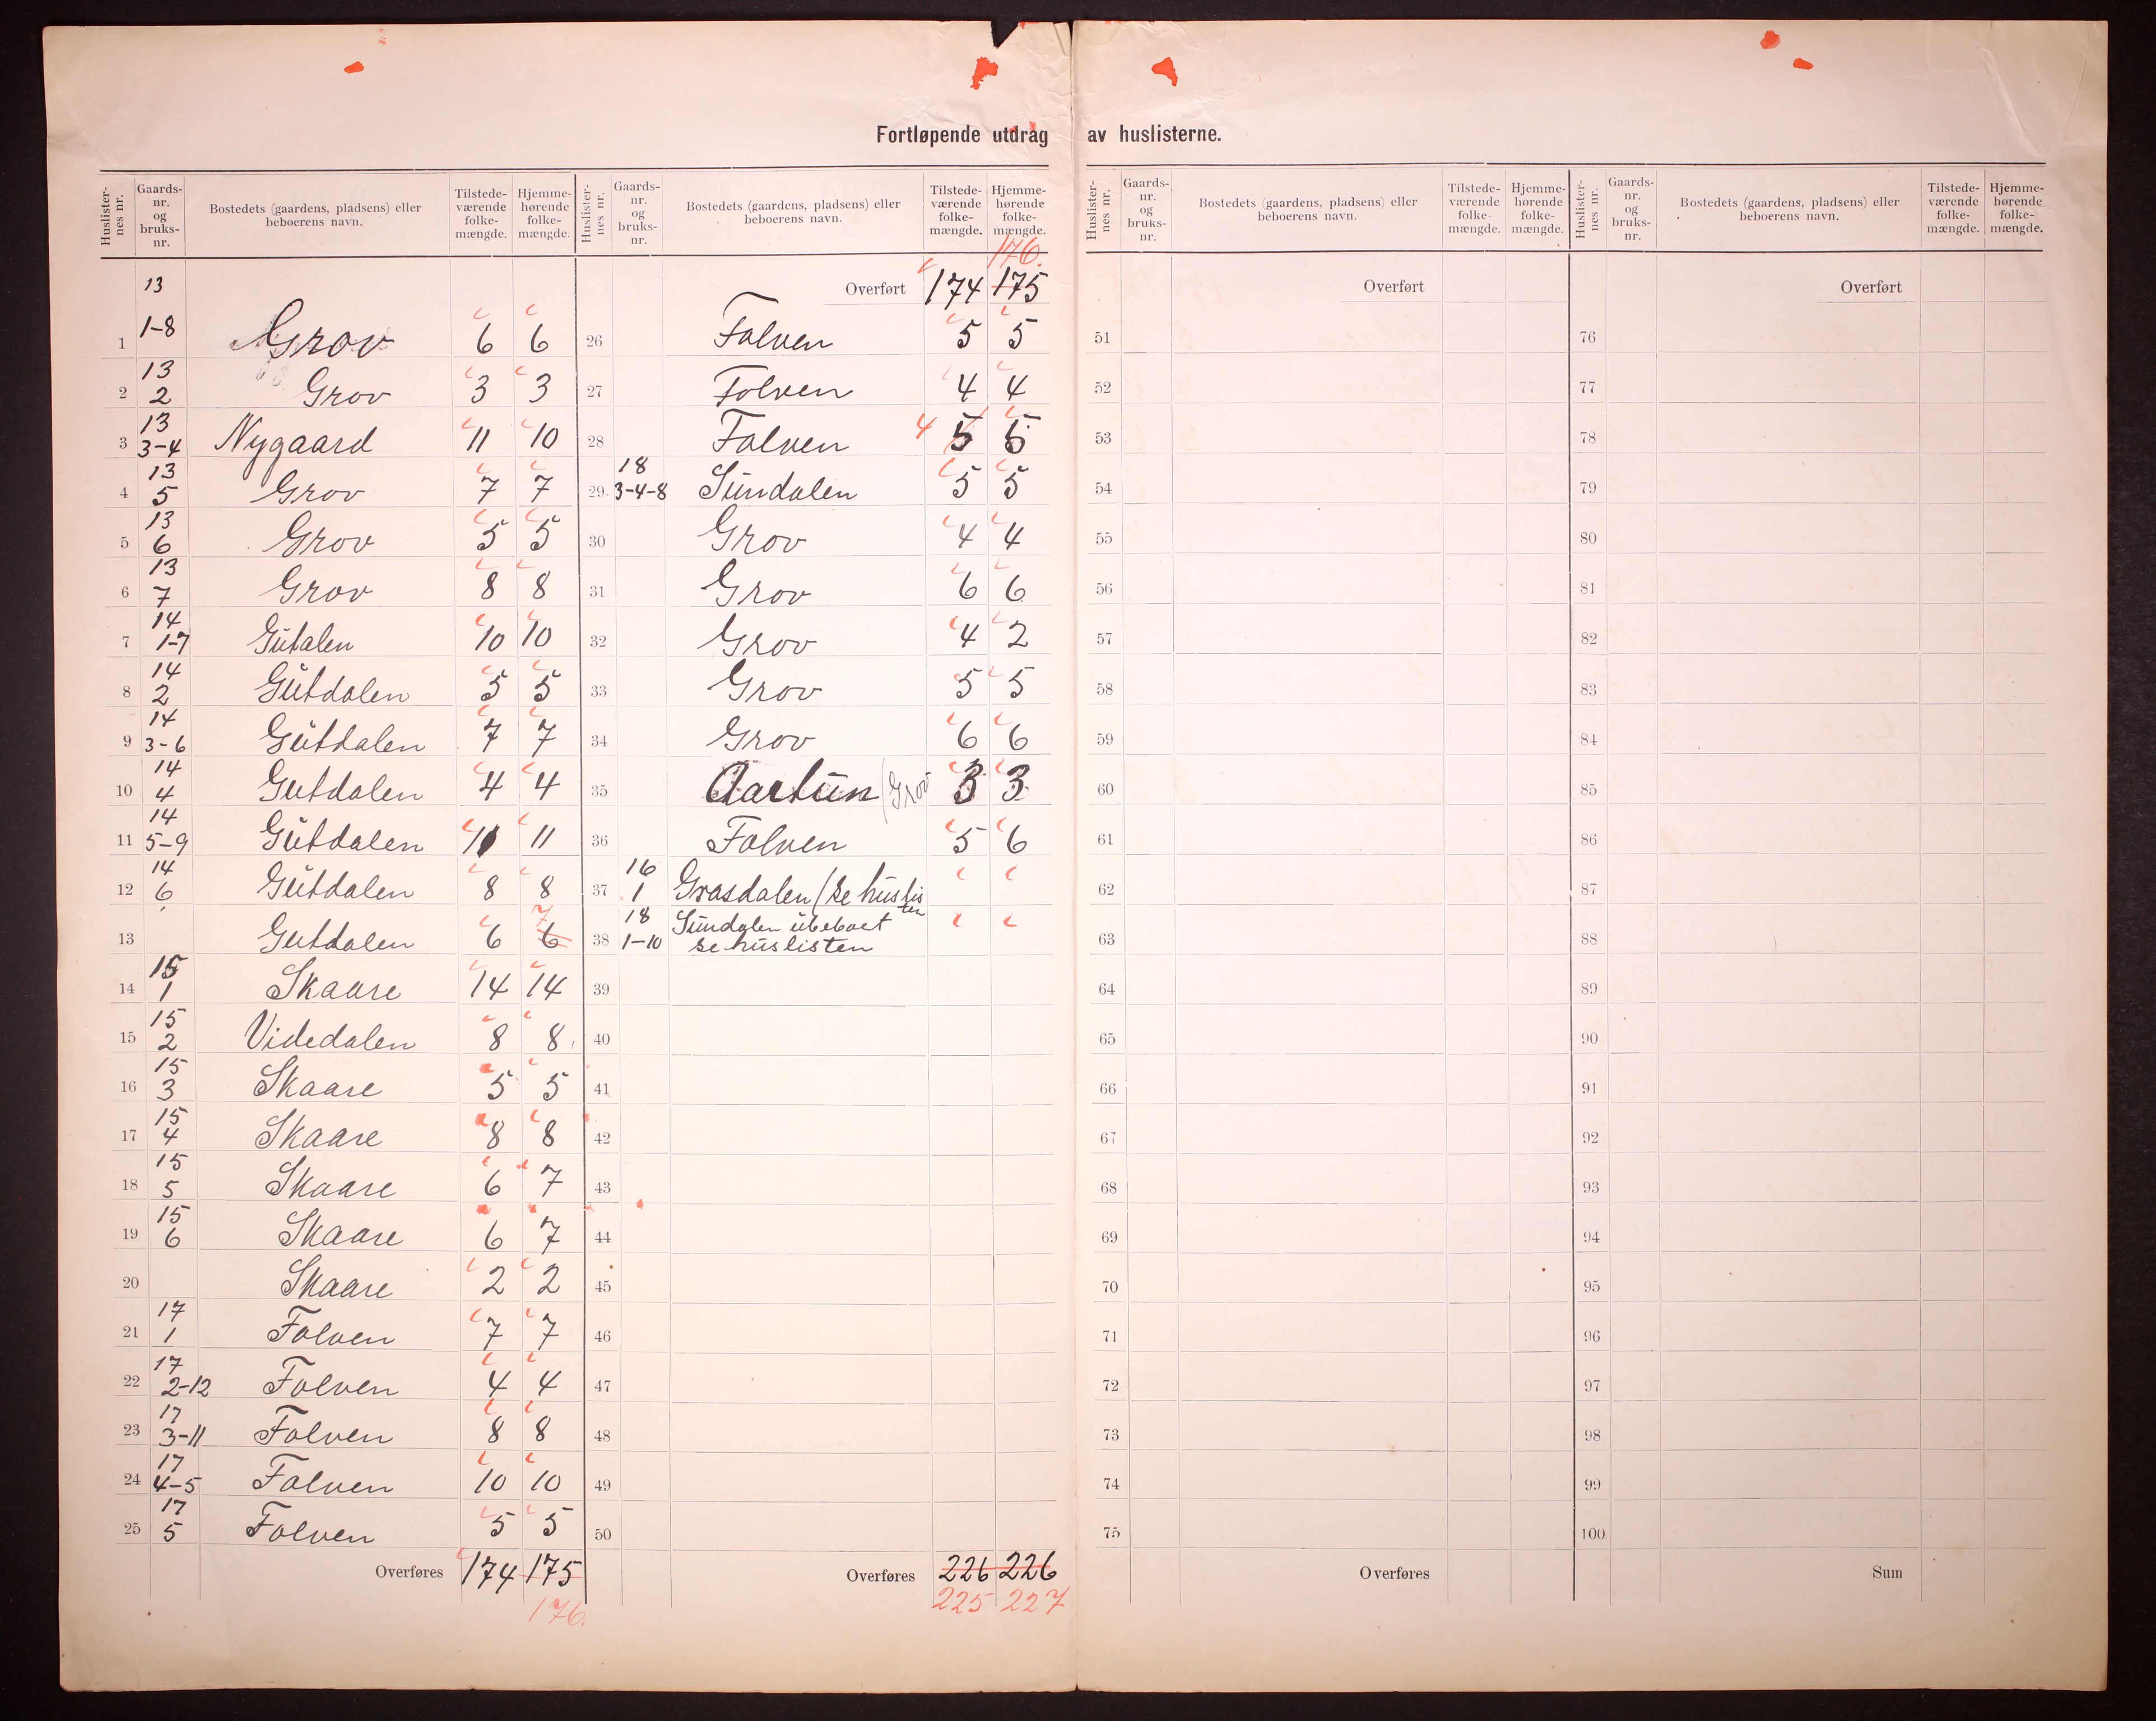 Fortløpende utdrag av huslisterne.
Huslister-nes nr. | Gaards-nr. og bruks-nr. | Bostedets (gaardens, pladsens) eller beboerens navn. | Tilstede-værende folke-mængde. | Hjemme-hørende folke-mængde.
13
1 1-8 Grov 6 6
13
2 2 Grov 3 3
13
3 3-4 Nygaard 11 10
13
4 5 Grov 7 7
13
5 6 Grov 5 5
13
6 7 Grov 8 8
14
7 1-7 Gutalen 10 10
14
8 2 Gutdalen 5 5
14
9 3-6 Gutdalen 7 7
14
10 4 Gutdalen 4 4
14
11 5-9 Gutdalen 11 11
14
12 6 Gutdalen 8 8
7
13 Gutdalen 6 6
15
14 1 Skaare 14 14
15
15 2 Videdalen 8 8
15
16 3 Skaare 5 5
15
17 4 Skaare 8 8
15
18 5 Skaare 6 7
15
19 6 Skaare 6 7
20 Skaare 2 2
17
21 1 Folven 7 7
17
22 2-12 Folven 4 4
17
23 3-11 Folven 8 8
17
24 4-5 Folven 10 10
17
25 5 Folven 5 5
Overføres 174 175
176.
Huslister-nes nr. | Gaards-nr. og bruks-nr. | Bostedets (gaardens, pladsens) eller beboerens navn. | Tilstede-værende folke-mængde. | Hjemme-hørende folke-mængde.
176.
Overført 174 175
26 Folven 5 5
27 Folven 4 4
28 Folven 4 5 5
18
29 3-4-8 Sundalen 5 5
30 Grov 4 4
31 Grov 6 6
32 Grov 4 2
33 Grov 5 5
34 Grov 6 6
35 Aartun (Grov 3 3
36 Folven 5 6
16
37 1 Grasdalen (se huslis
ten
18 Sundalen ubeboet
38 1-10 se huslisten
39
40
41
42
43
44
45
46
47
48
49
50
Overføres 226 226
225 227
Huslister-nes nr. | Gaards-nr. og bruks-nr. | Bostedets (gaardens, pladsens) eller beboerens navn. | Tilstede-værende folke-mængde. | Hjemme-hørende folke-mængde.
Overført
51
52
53
54
55
56
57
58
59
60
61
62
63
64
65
66
67
68
69
70
71
72
73
74
75
Overføres
Huslister-nes nr. | Gaards-nr. og bruks-nr. | Bostedets (gaardens, pladsens) eller beboerens navn. | Tilstede-værende folke-mængde. | Hjemme-hørende folke-mængde.
Overført
76
77
78
79
80
81
82
83
84
85
86
87
88
89
90
91
92
93
94
95
96
97
98
99
100
Sum